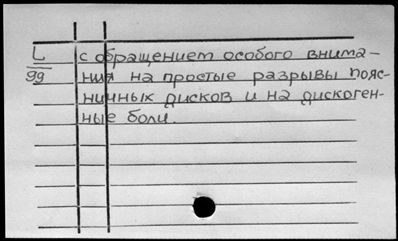 L с обращением особого внима-
99 ния на простые разрывы пояс-
ничных дисков и на дискоген-
ные боли.